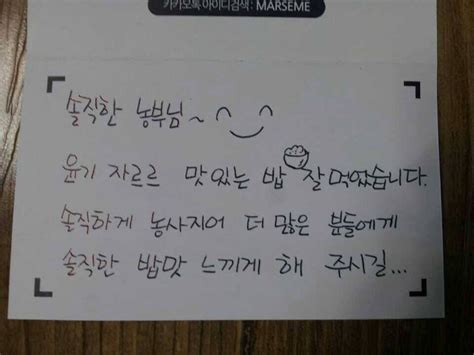 카카오톡 아이디검색 : MARSEME
솔직한 농부님~
윤기 자르르 맛있는 밥 잘 먹었습니다.
솔직하게 농사지어 더 많은 분들에게
솔직한 밥맛 느끼게 해 주시길...